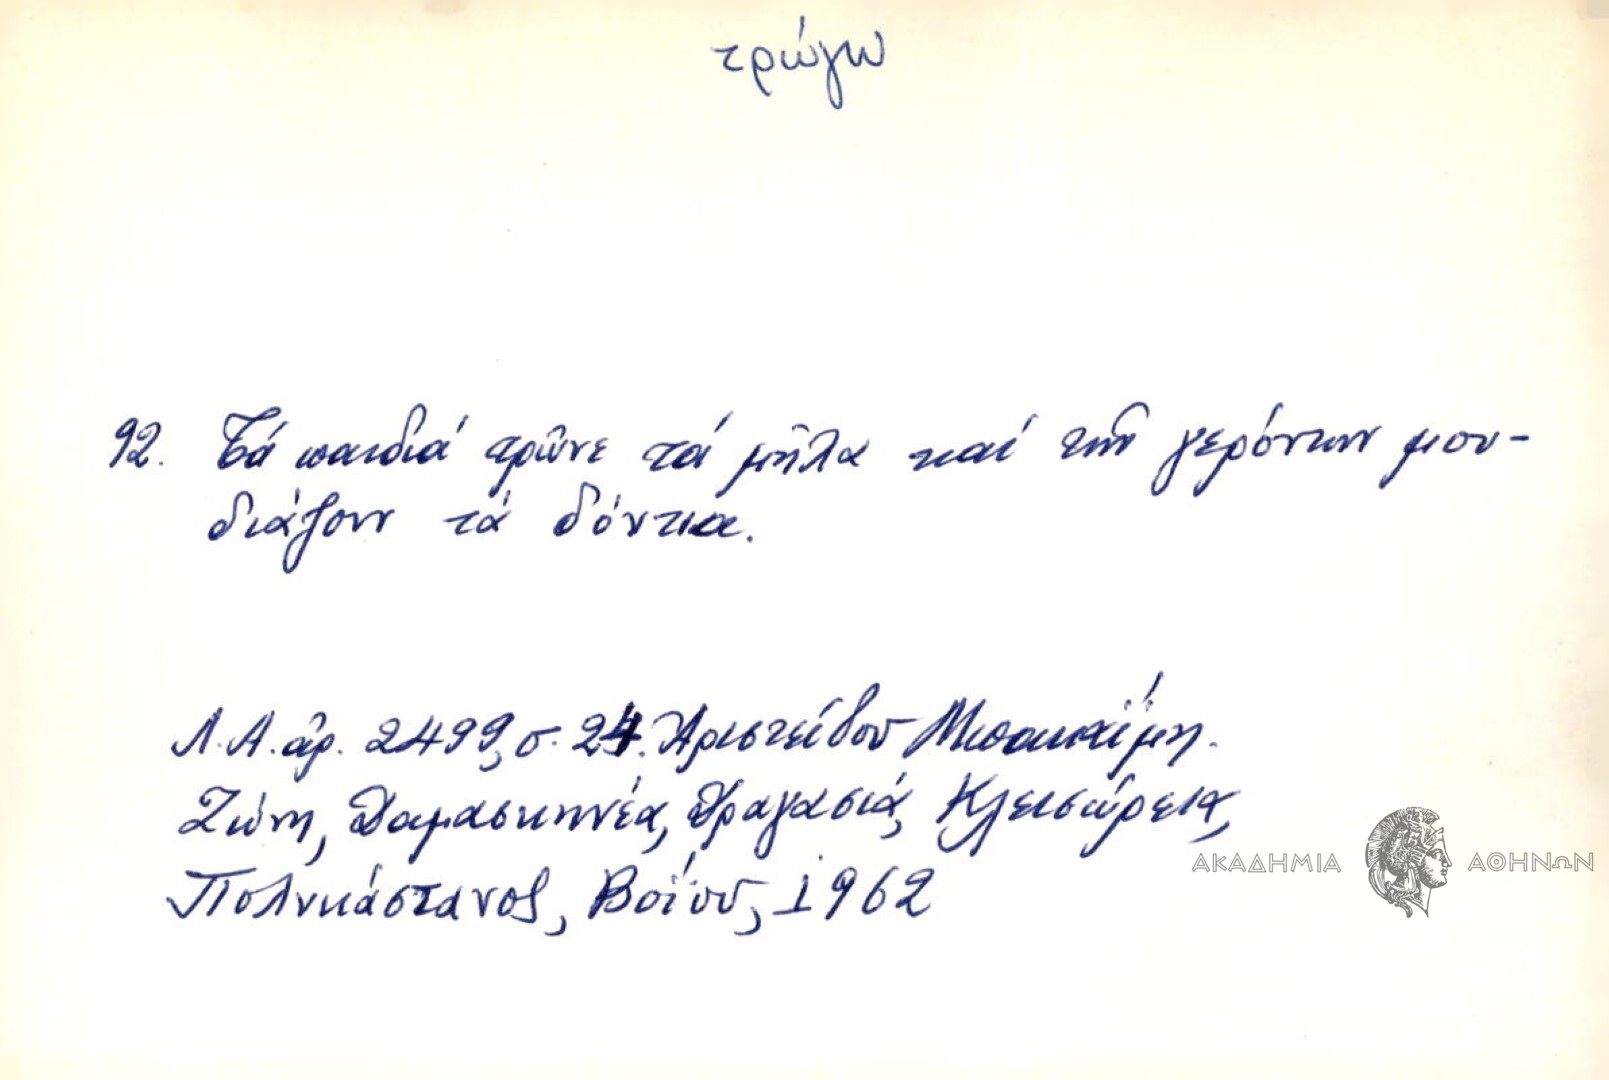 τρώγω
92. Τά παιδιά τρῶνε τά μῆλα καί τῶν γερόντων μου-
διάζουν τά δόντια.
Λ.Α. ἀρ. 2499, σ. 24. Ἀριστείδου
Ζώνη, Δαμασκηνέα, Δραγασιά, Κλεισώρεια,
Πολυκάστανος, Βοΐου, 1962
ΑΚΑΔΗΜΙΑ ΑΘΗΝΩΝ